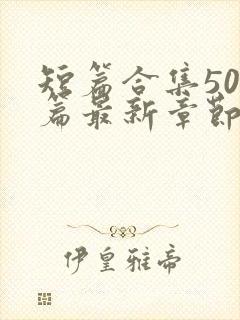 短篇合集50
篇最新章节
伊皇雅帝